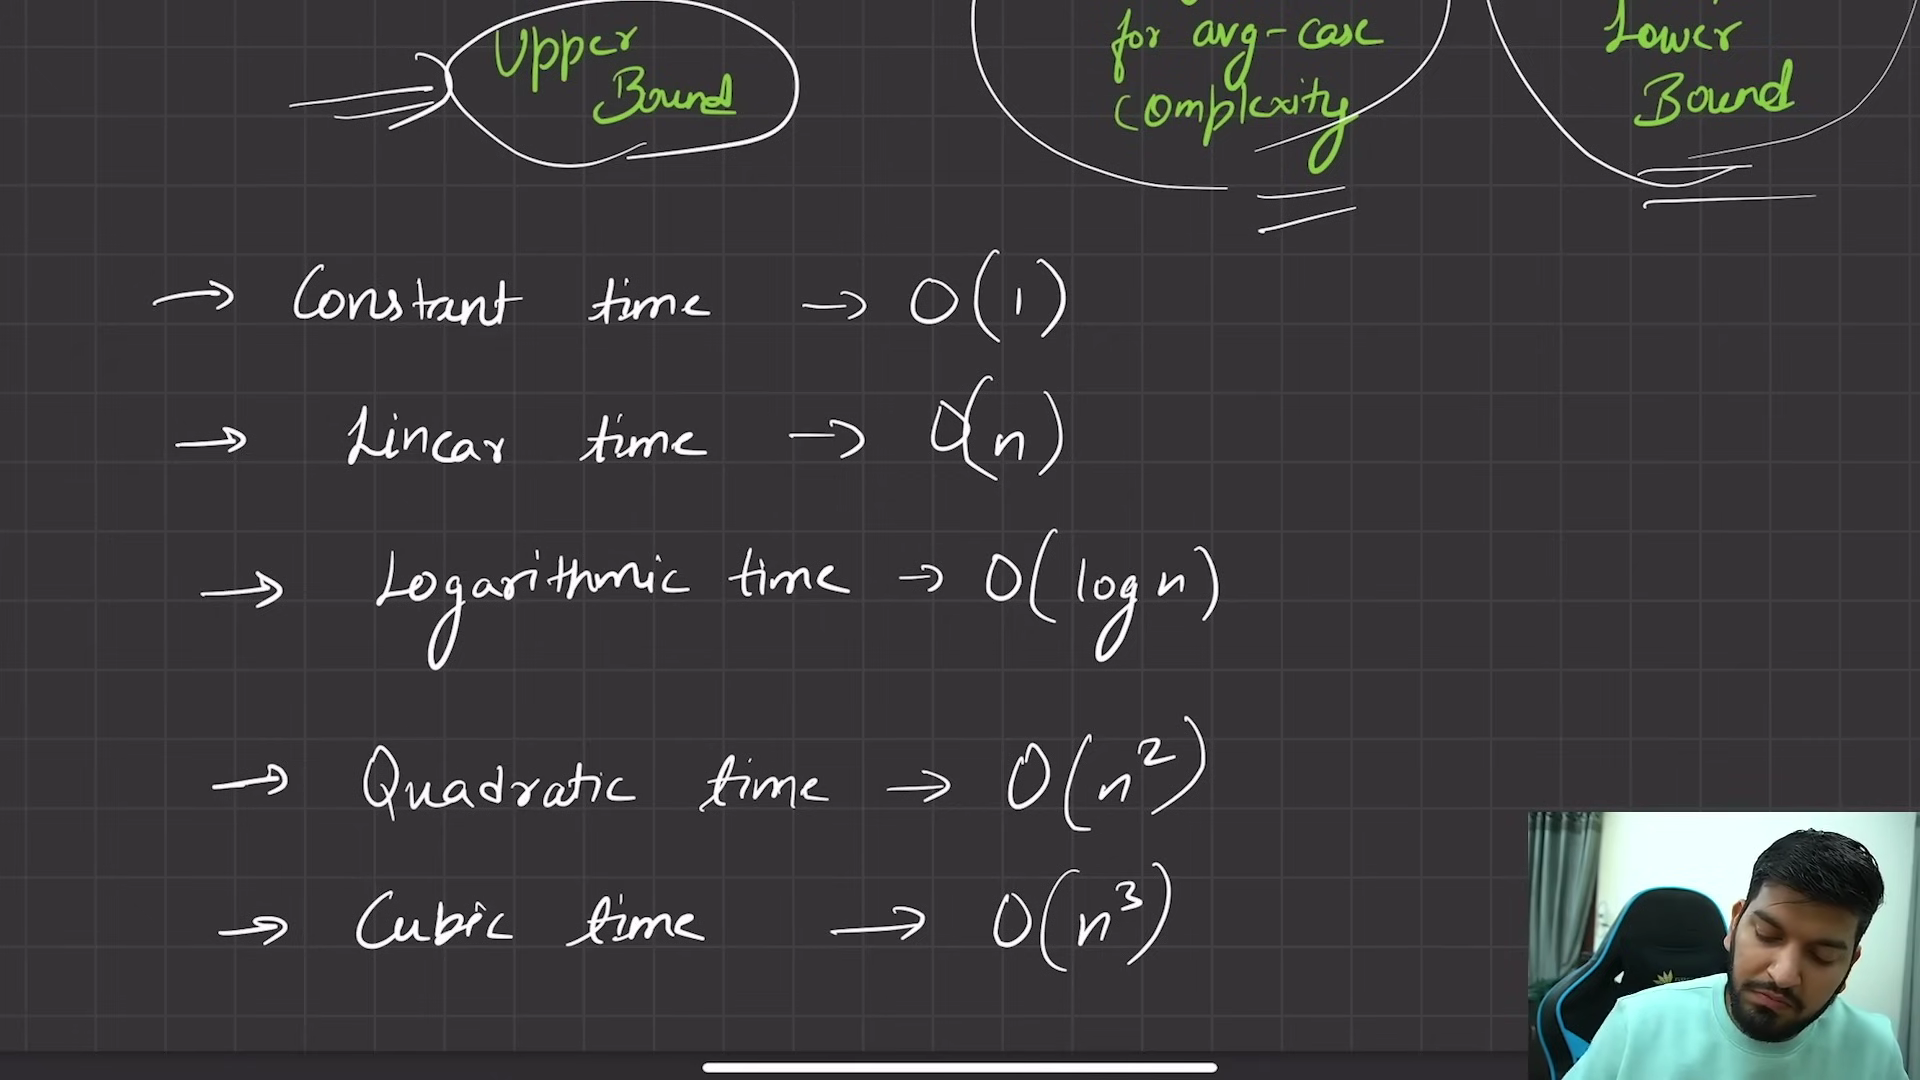 Upper
Bound
for avg-case
complexity
Lower
Bound
→ Constant time → O(1)
→ Linear time → O(n)
→ Logarithmic time → O(log n)
→ Quadratic time → O(n²)
→ Cubic time → O(n³)